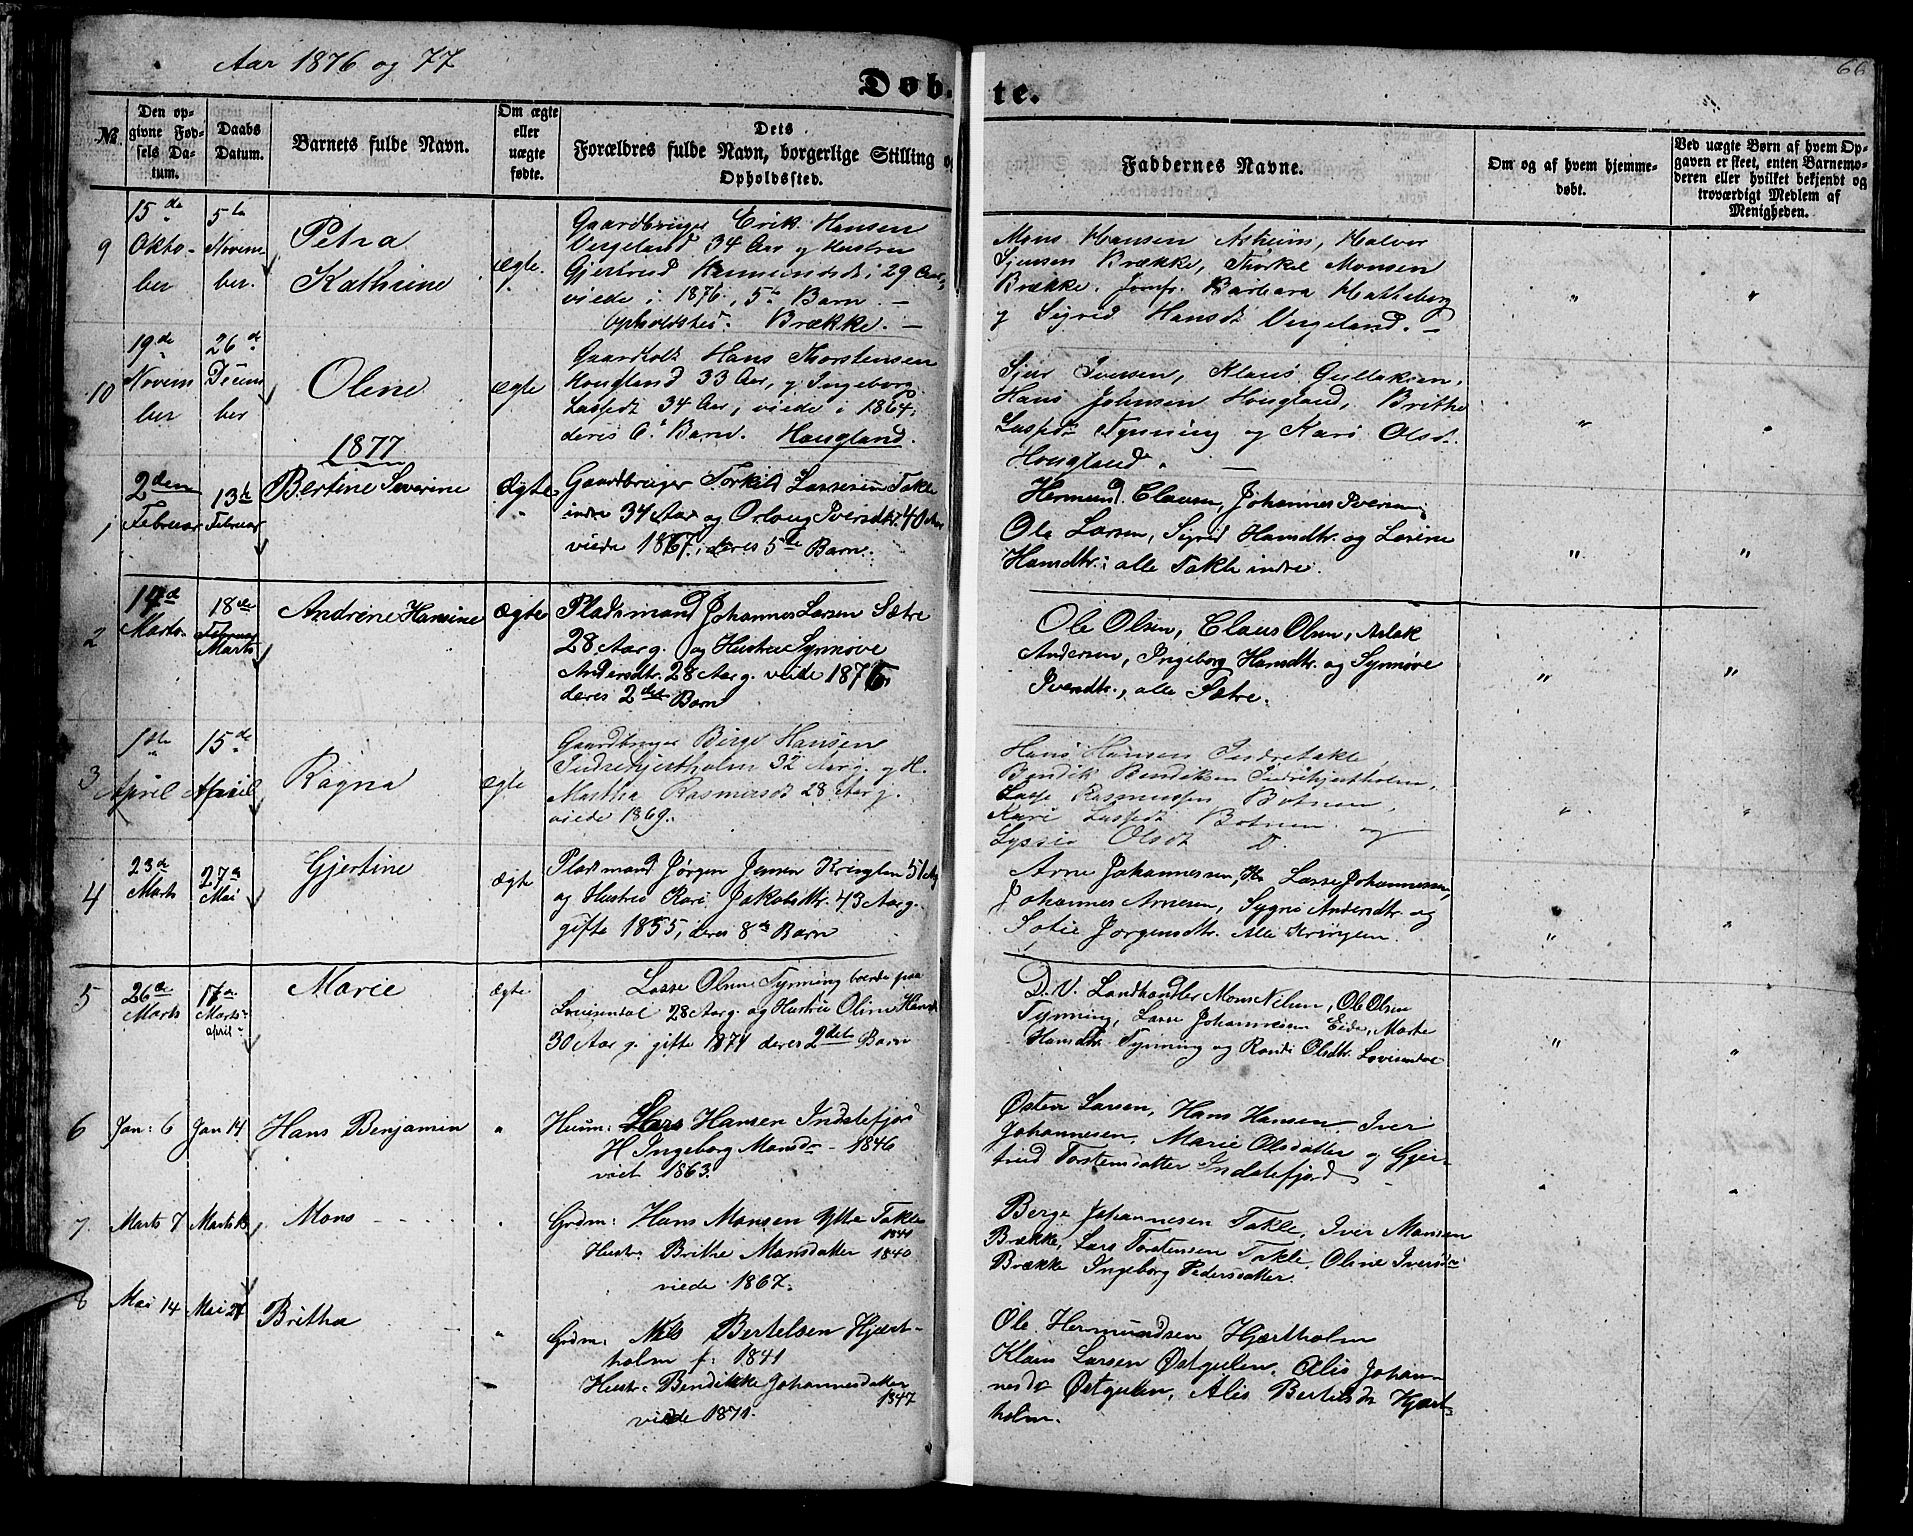 Aar 1876 og 77
66
Døbte.
№
Den op-
givne Fød-
sels Da-
tum.
Daabs
Datum.
Barnets fulde Navn.
Om ægte
eller
uægte
fødte.
Dets
Forældres fulde Navn, borgerlige Stilling o
Opholdssted.
Faddernes Navne.
Om og af hvem hjemme-
døbt.
Ved uægte Børn af hvem Op-
gaven er skeet, enten Barnemo-
deren eller hvilket bekjendt og
troværdigt Medlem af
Menigheden.
9
15de
Okto-
ber
5te
Novem-
ber.
Petra
Kathrine
ægte.
Gaardbruger Erik Hansen
Vergeland 34 Aar og Hustru
Gjertrud 29 Aar,
viede i 1876, 5te Barn. —
Opholdsted. Brække. —
Mons Hansen Askeim, Halvor
Brække, Thorkel Monsen
Brække. Jomfr. Barbara Hatteberg
og Sigrid Hansdt Vergeland. —
"
"
10
19de
Novem
ber
26de
Decem
ber
Oline
ægte
Gaardholdr Hans Thorstensen
Hougland 33 Aar, og Ingeborg
Lassedt 34 Aar, viede i 1864,
deres 6te Barn. Hougland.
Sjur Iversen, Klaus Gullaksen,
Hans Johnsen Hougland, Brithe
Lassedt Tynning og Kari Olsdt
Hougland. —
"
"
1877
1
2den
Februar
13de
Februar
Bertine Severine
ægte
Gaardbruger Torkild Lassesen Takle
indre 34 Aar og Orlaug Iversdtr. 40 Aar
viede 1867, deres 5te Barn.
Hermund Clausen, Johannes Iversen,
Ole Larsen, Sigrid Hansdtr. og Lasine
Hansdtr. alle Takle indre.
"
"
2
14de
Marts
18de
Februar
Marts
Andrine Hansine
ægte
Pladsmand Johannes Larsen Sætre
28 Aar g. og Hustru Synnøve
Andersdtr. 28 Aar g. viede 1875
deres 2det Barn
Ole Olsen, Claus Olsen, Aslak
Andersen, Ingeborg Hansdtr. og Synnøve
Iversdtr., alle Sætre.
"
"
3
1ste
April
15de
April
Ragna
ægte
Gaardbruger Børge Hansen
Indrehjertholm 32 Aar g. og H.
Martha Rasmusdt 28 Aar g.
viede 1869.
Hans Hansen Indretakle,
Bendik Bendiksen Indrehjertholm,
Lasse Rasmussen Botnen,
Kari Lassedt Botnen og
Olsdt D.
"
"
4
23de
Marts
27de
Mai
Gjertine
ægte
Pladsmand Jørgen Jensen Kringlen 51 Aar
og Hustru Kari Jakobsdtr. 43 Aar g.
gifte 1855, deres 8de Barn
Arne Johannessen, Lasse Johannessen,
Johannes Arnesen, Sygni Andersdtr. og
Sofie Jørgensdtr. Alle Kringlen.
"
"
5
26de
Marts
17de
Marts
april
Marie
ægte
Lasse Olsen Tynning boende paa
Lovisendal 28 Aar g. og Hustru Oline Hansdt
30 Aar g. gifte 1871 deres 2det Barn
D. V. Landhandler Mons Nilsen, Ole Olsen
Tynning, Lasse Johannesen Eide, Marte
Hansdtr Tynning og Randi Olsdtr. Lovisendal
"
"
6
Jan: 6
Jan 14
Hans Benjamin
"
Huum: Lars Hansen Indstefjord
H. Ingeborg Monsdr — 1846
viet 1863.
Østen Larsen, Hans Hansen. Iver
Johannesen, Marie Olsdatter og Gjer-
trud Torstensdatter Indstefjord
7
Marts 7
Marts 18
Mons
"
Grdm: Hans Monsen Yttre Takle
1841
Hustr: Brithe Monsdatter 1840
viede 1867.
Berge Johannesen Takle, Iver Monsen
Brække, Lars Torstensen Takle, Oline Iversdr
Brække Ingeborg Pedersdatter.
8
Mai 14
Mai 27
Britha
"
Grdm: Nils Bertelsen Hjært-
holm f: 1841
Hustr: Bendikke Johannesdatter
1847
viede 1871.
Ole Hermundsen Hjærtholm
Klaus Larsen Østgulen, Alis Johan-
nesdr Østgulen, Alis Bertelsdr Hjært-
holm.